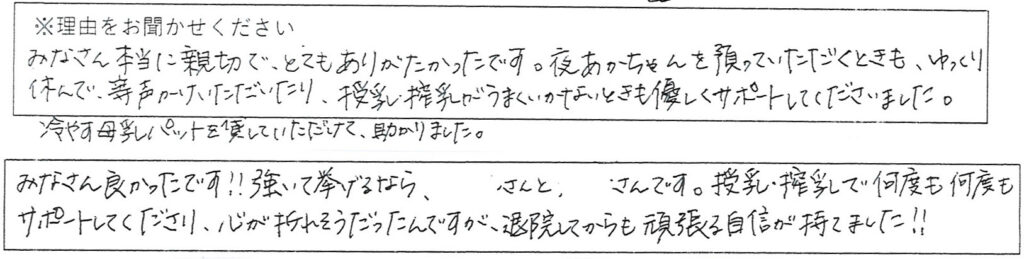 ※理由をお聞かせください
みなさん本当に親切で、とてもありがたかったです。夜あかちゃんを預っていただくときも、ゆっくり
休んで、等声かけいただいたり、授乳・搾乳がうまくいかないときも優しくサポートしてくださいました。
冷やす母乳パットを貸していただけて、助かりました。
みなさん良かったです!!強いて挙げるなら、 さんと、 さんです。授乳・搾乳で何度も何度も
サポートしてくださり、心が折れそうだったんですが、退院してからも頑張る自信が持てました!!